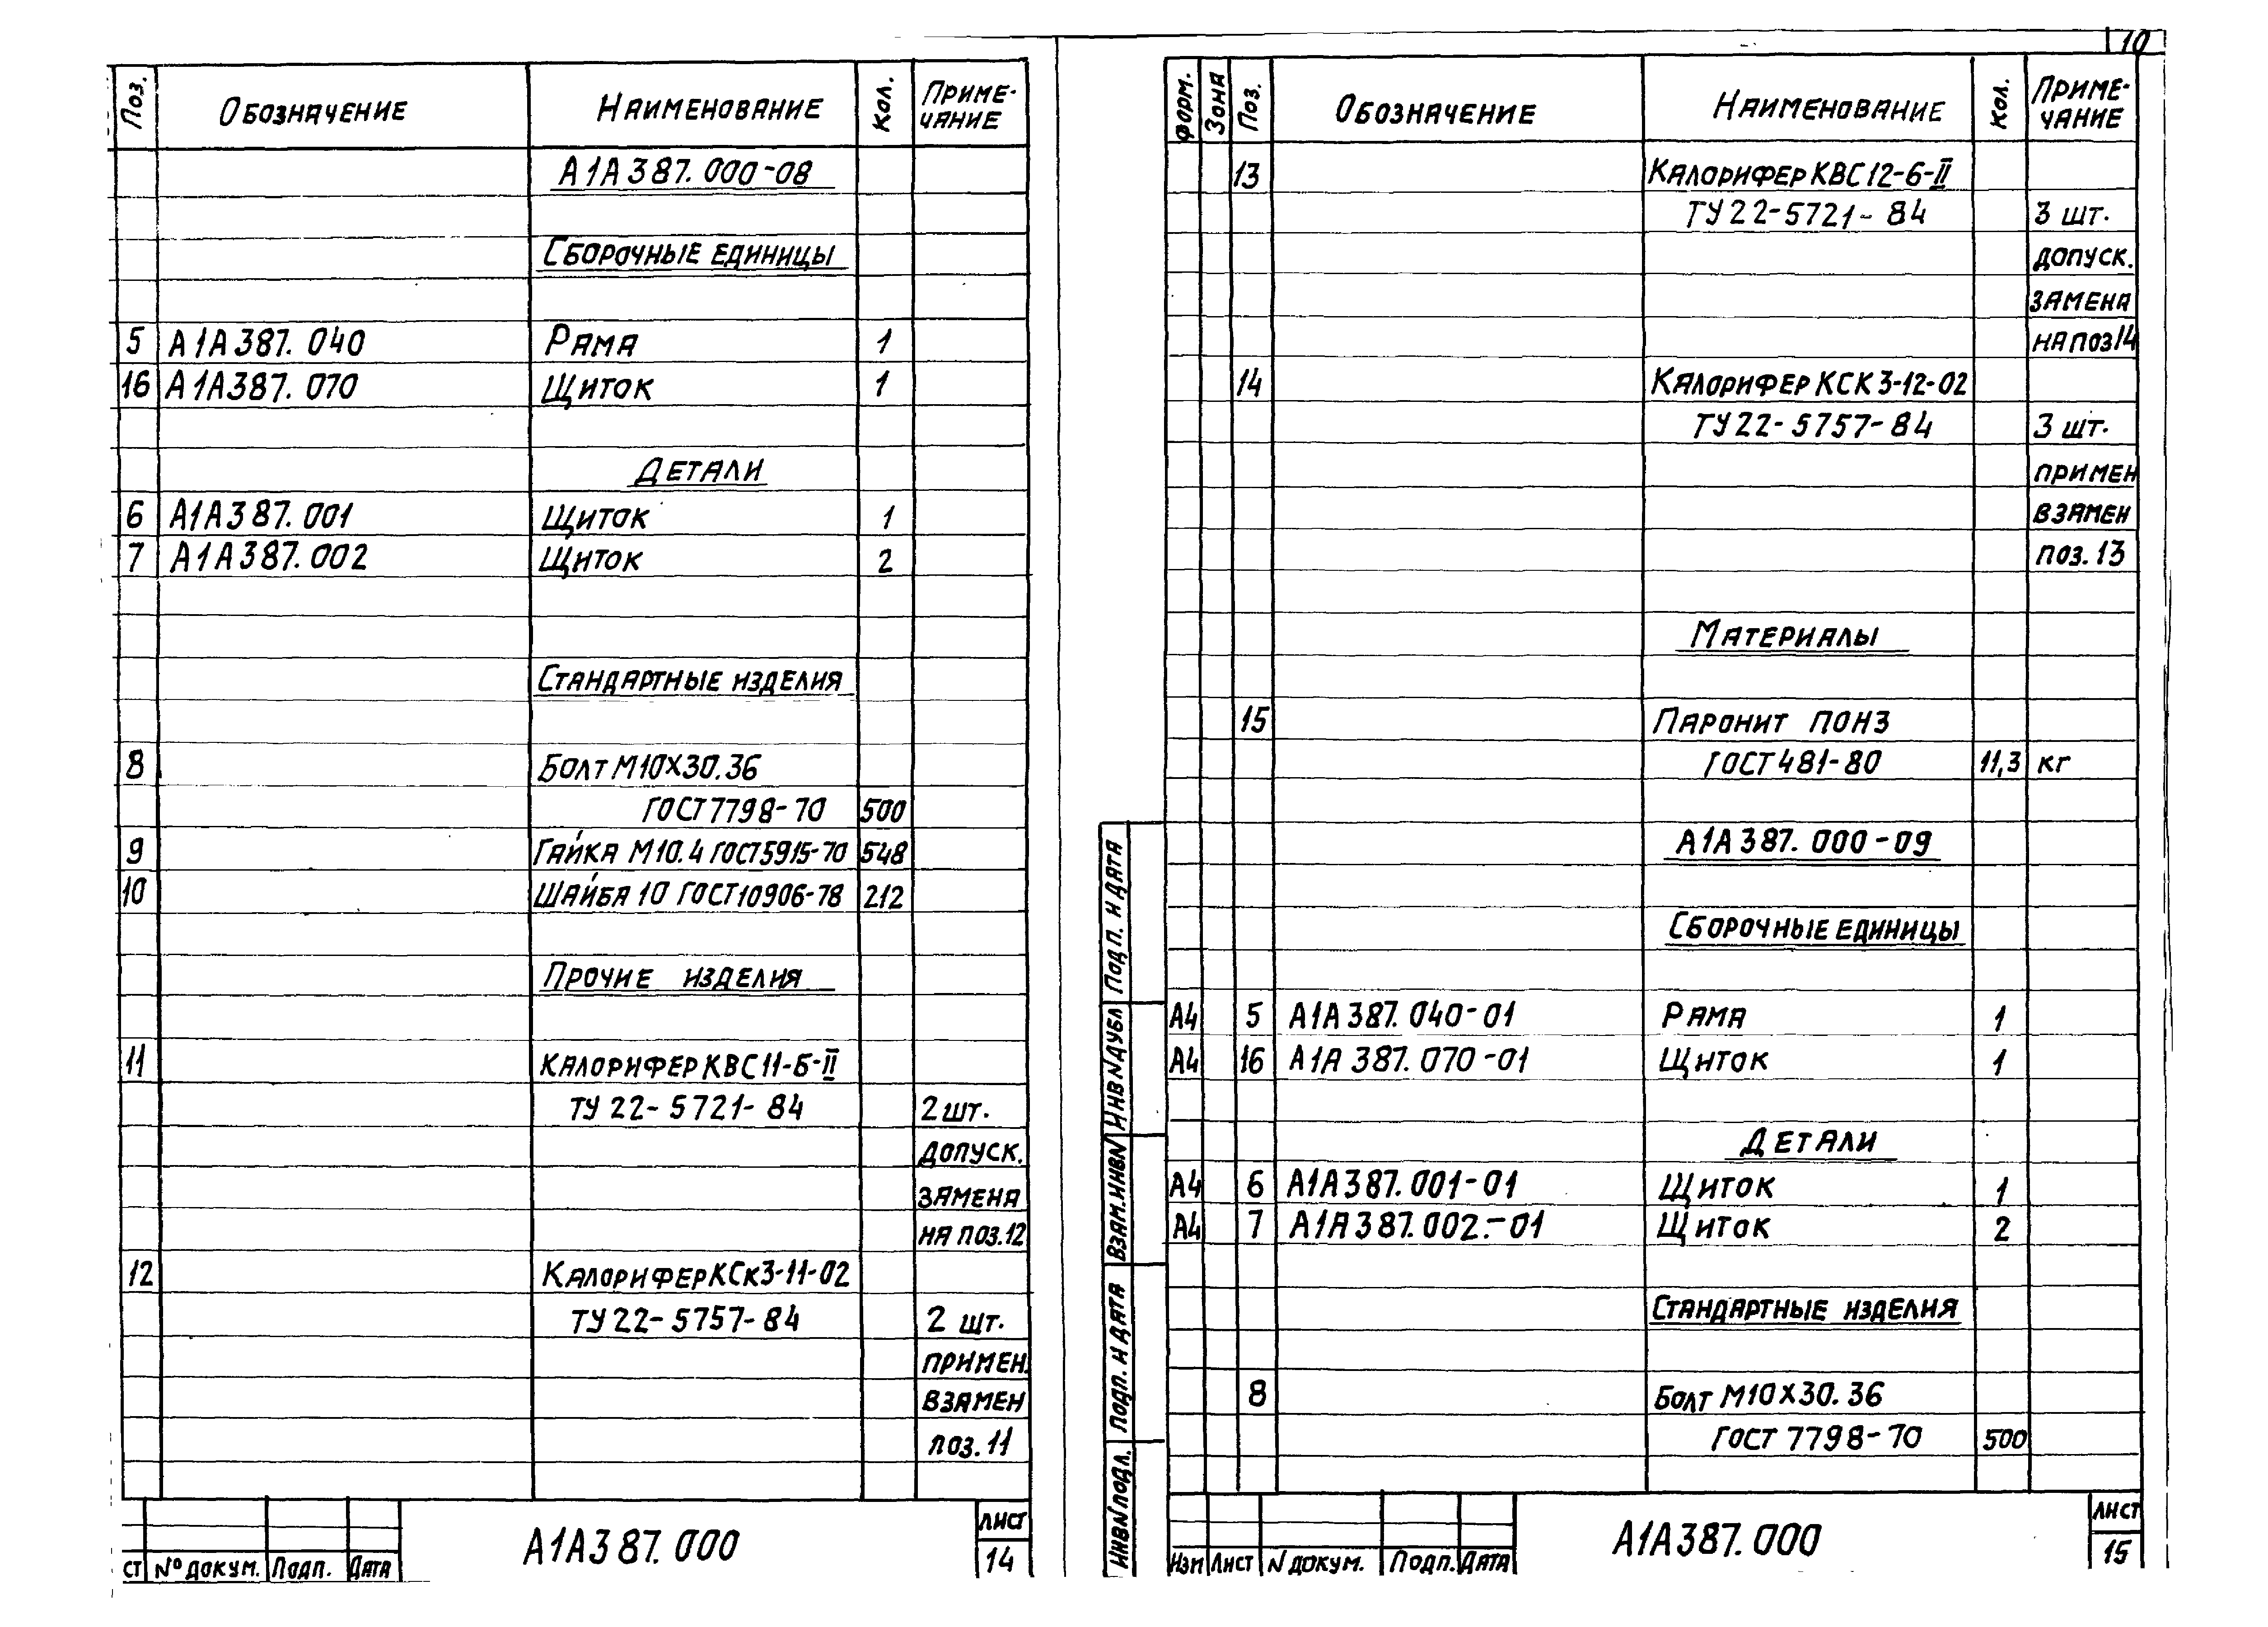 10
Поз. Обозначение Наименование Кол. Приме-
чание
А1А387.000-08
Сборочные единицы
5 А1А387.040 Рама 1
16 А1А387.070 Щиток 1
Детали
6 А1А387.001 Щиток 1
7 А1А387.002 Щиток 2
Стандартные изделия
8 Болт М10х30.36
ГОСТ7798-70 500
9 Гайка М10.4 ГОСТ5915-70 548
10 Шайба 10 ГОСТ10906-78 212
Прочие изделия
11 Калорифер КВС11-Б-II
ТУ 22-5721-84 2 шт.
допуск.
замена
на поз.12
12 Калорифер КСк3-11-02
ТУ 22-5757-84 2 шт.
примен.
взамен
поз.11
ст № докум. Подп. Дата
А1А387.000
лист
14
Форм. Зона Поз. Обозначение Наименование Кол. Приме-
чание
13 Калорифер КВС12-6-II
ТУ 22-5721-84 3 шт.
допуск.
замена
на поз14
14 Калорифер КСК3-12-02
ТУ22-5757-84 3 шт.
примен
взамен
поз.13
Материалы
15 Паронит ПОН3
ГОСТ481-80 11,3 кг
А1А387.000-09
Сборочные единицы
А4 5 А1А387.040-01 Рама 1
А4 16 А1А387.070-01 Щиток 1
Детали
А4 6 А1А387.001-01 Щиток 1
А4 7 А1А387.002.-01 Щиток 2
Стандартные изделия
8 Болт М10х30.36
ГОСТ 7798-70 500
Подп. и дата
Инв N дубл
Взам. инв N
Подп. и дата
Инв N подл.
Изм Лист N докум. Подп. Дата
А1А387.000
лист
15